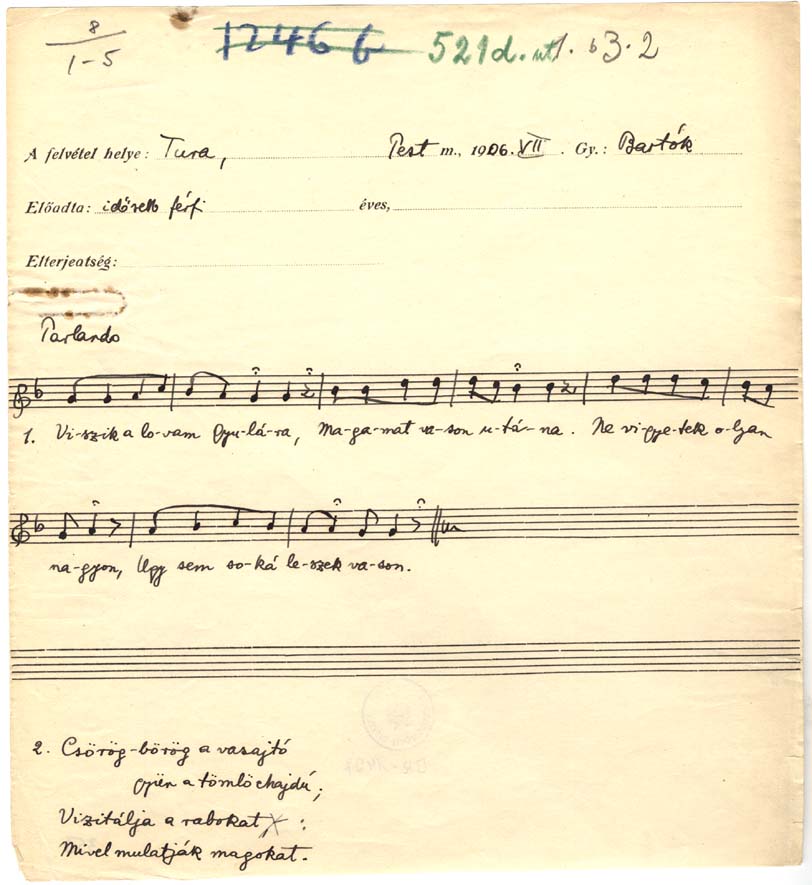 8
1-5
12466 521d. ut1. b3.2
A felvétel helye: Tura, Pest m., 1906. VII. Gy.: Bartók
Előadta: idősebb férfi éves,
Elterjeatség:
Parlando
1. Vi-szik a lo-vam Gyu-lá-ra, Ma-ga-mat va-son u-tá-na. Ne vi-gye-tek o-lyan
na-gyon, Úgy sem so-ká le-szek va-son.
2. Csörög-börög a vasajtó
gyün a tömlöchajdú;
Vizitálja a rabokat :
Mivel mulatják magokat.